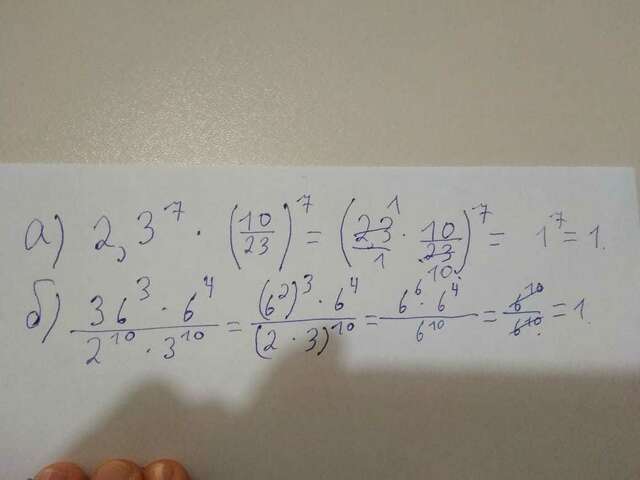 а) 2,3⁷ · (10/23)⁷ = (2,3/1 · 10/23)⁷ = 1⁷ = 1.
б) 36³ · 6⁴ / 2¹⁰ · 3¹⁰ = (6²)³ · 6⁴ / (2 · 3)¹⁰ = 6⁶ · 6⁴ / 6¹⁰ = 6¹⁰ / 6¹⁰ = 1.